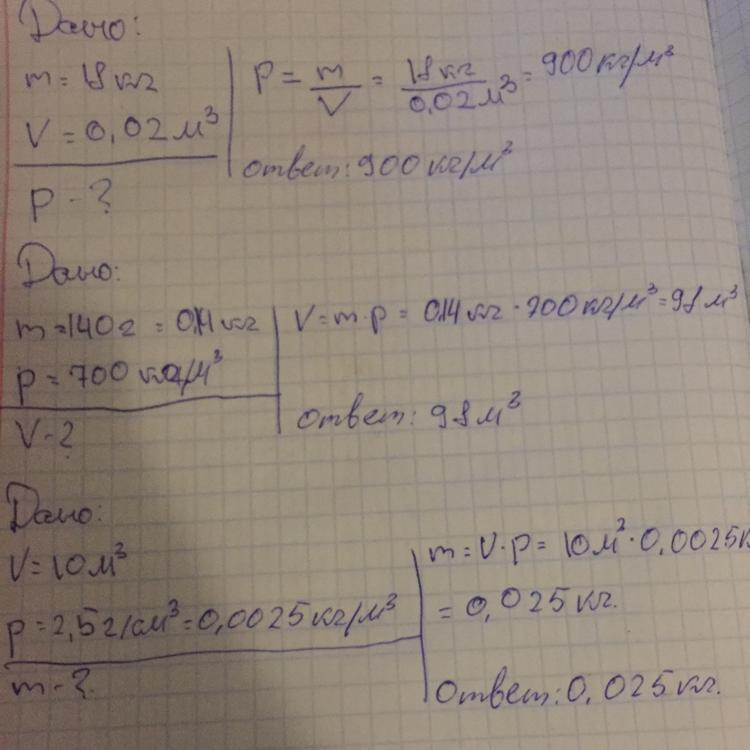 Дано:
m = 18 кг
V = 0,02 м³
p - ?
p = m/V = 18 кг/0,02 м³ = 900 кг/м³
ответ: 900 кг/м³
Дано:
m = 140 г = 0,14 кг
p = 700 кг/м³
V - ?
V = m · p = 0,14 кг · 700 кг/м³ = 98 м³
Ответ: 98 м³
Дано:
V = 10 м³
p = 2,5 г/см³ = 0,0025 кг/м³
m - ?
m = V · p = 10 м³ · 0,0025 к
= 0,025 кг.
Ответ: 0,025 кг.